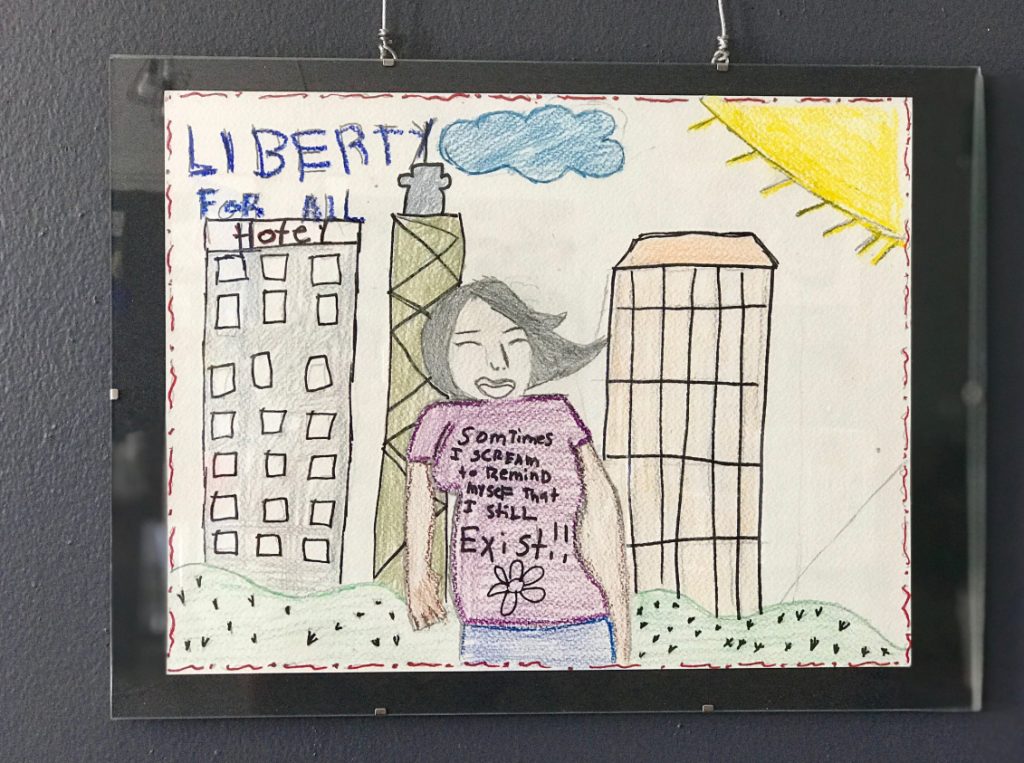 LIBERTY
FOR ALL
Hotel
SomTimes
I SCREAM
to REmIND
mYSEF That
I STILL
Exist!!